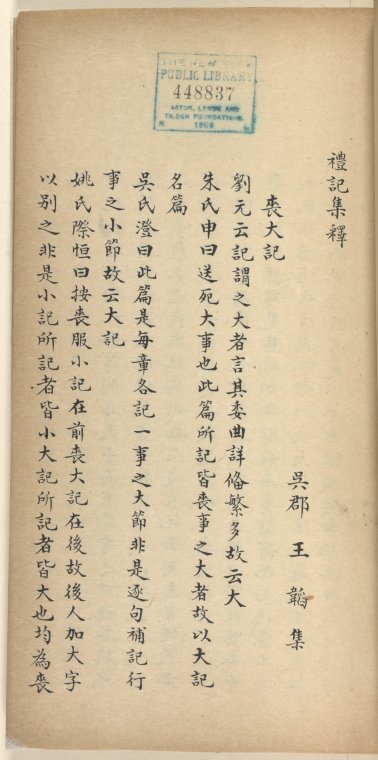 THE NEW YORK
PUBLIC LIBRARY
448837
ASTOR, LENOX AND
TILDEN FOUNDATIONS.
1909
禮記集釋
吳郡 王 韜 集
喪大記
劉元云記謂之大者言其委曲詳備繁多故云大
朱氏申曰送死大事也此篇所記皆喪事之大者故以大記
名篇
吳氏澄曰此篇是每章各記一事之大節非是逐句補記行
事之小節故云大記
姚氏際恒曰按喪服小記在前喪大記在後故後人加大字
以別之非是小記所記者皆小大記所記者皆大也均為喪